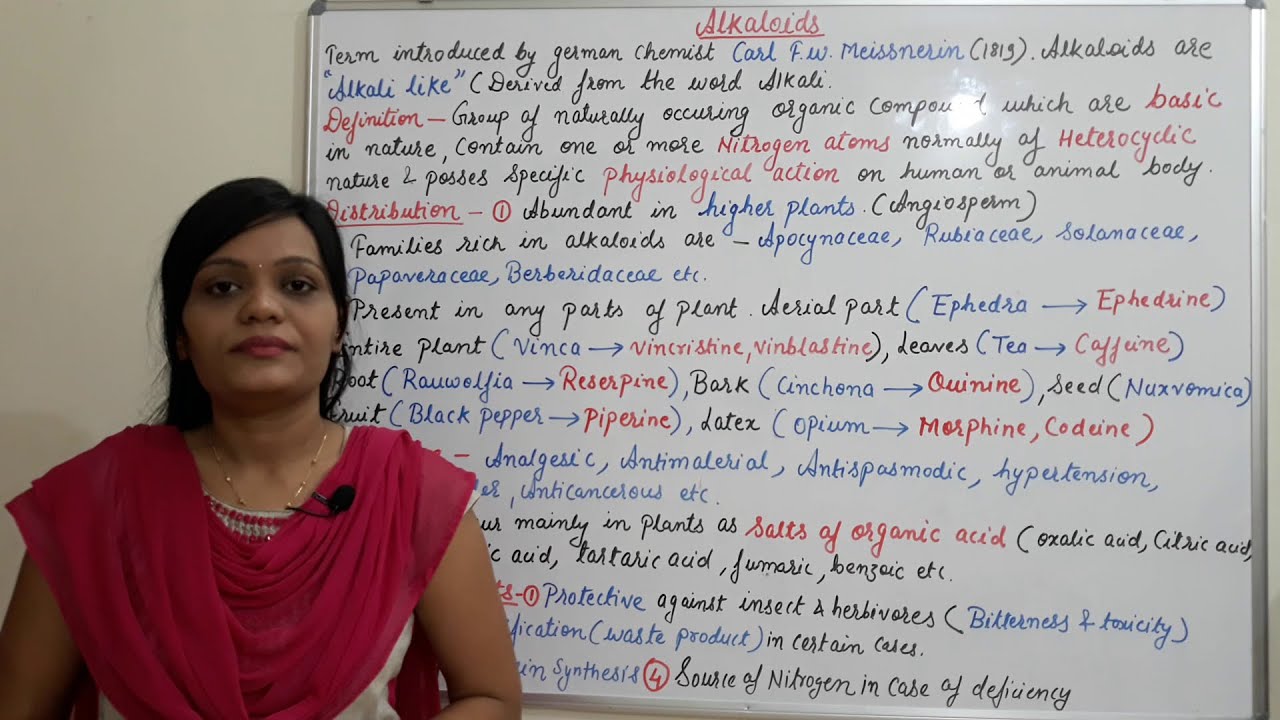 Alkaloids
Term introduced by german chemist Carl F.W. Meissnerin (1819). Alkaloids are
"Alkali like" (Derived from the word Alkali.
Definition - Group of naturally occuring organic compound which are basic
in nature, contain one or more Nitrogen atoms normally of Heterocyclic
nature & posses specific physiological action on human or animal body.
Distribution - ① Abundant in higher plants. (Angiosperm)
Families rich in alkaloids are - Apocynaceae, Rubiaceae, Solanaceae,
Papaveraceae, Berberidaceae etc.
Present in any parts of plant. Aerial part (Ephedra → Ephedrine)
Entire plant (Vinca → vincristine, vinblastine), Leaves (Tea → Caffeine)
Root (Rauwolfia → Reserpine), Bark (Cinchona → Quinine), Seed (Nuxvomica)
Fruit (Black pepper → Piperine), Latex (opium → Morphine, Codeine)
- Analgesic, Antimalerial, Antispasmodic, hypertension,
, Anticancerous etc.
mainly in plants as salts of organic acid (oxalic acid, Citric acid,
acid, tartaric acid, fumaric, benzoic etc.
- ① Protective against insect & herbivores (Bitterness & toxicity)
(waste product) in certain cases.
Synthesis ④ Source of Nitrogen in case of deficiency